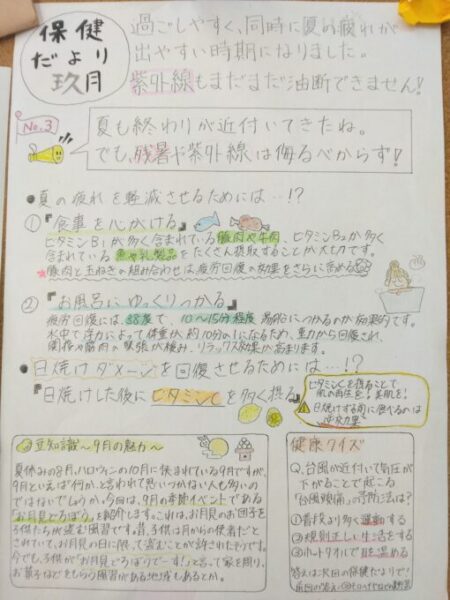 保健
だより
玖月
過ごしやすく、同時に夏の疲れが
出やすい時期になりました。
紫外線もまだまだ油断できません!
No.3
夏も終わりが近付いてきたね。
でも、残暑や紫外線は侮るべからず!
●夏の疲れを軽減させるためには…!?
①『食事を心がける』
ビタミンB₁が多く含まれている豚肉や牛肉、ビタミンB₂が多く
含まれている魚や乳製品をたくさん摂取することが大切です。
*豚肉と玉ねぎの組み合わせは疲労回復の効果をさらに高める
②『お風呂にゆっくりつかる』
疲労回復には、38度で、10〜15分程度湯船につかるのが効果的です。
水中で浮力によって体重が約10分の1になるため、重力から回復され、
関節や筋肉の緊張が緩み、リラックス効果が高まります。
●日焼けダメージを回復させるためには…!?
『日焼けした後にビタミンCを多く摂る』
ビタミンCを摂ることで
肌の再生を!美肌を!
日焼けする前に食べるのは
逆効果
豆知識〜9月の魅力〜
夏休みの8月、ハロウィンの10月に挟まれている9月ですが、
9月といえば何か、と言われて思いつかない人も多いの
ではないでしょうか。今回は、9月の季節イベントである
「お月見どろぼう」を紹介します。これは、お月見のお団子を
子供たちが盗む風習です。昔、子供は月からの使者だと
されていて、お月見の日に限って盗むことが許されたそうです。
今でも、子供が「お月見どろぼうでーす!」と言って家を周り、
お菓子などをもらう風習がある地域もあるとか。
健康クイズ
Q.台風が近付いて気圧が
下がることで起こる
「台風頭痛」の予防法は?
①普段より多く運動する
②規則正しい生活をする
③ホットタオルで目を温める
答えは次回の保健だよりで!